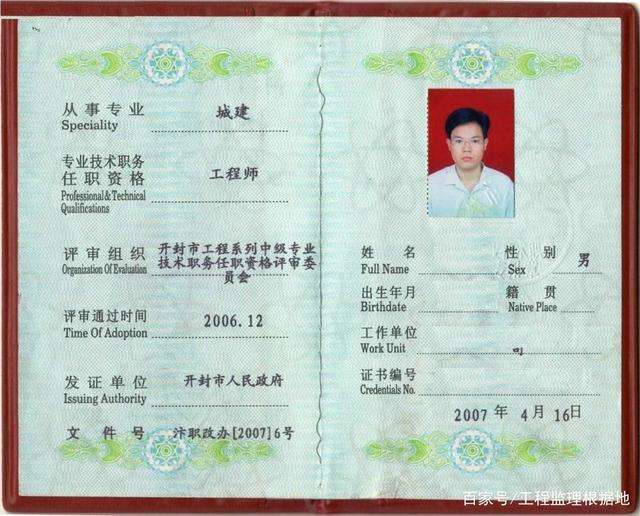 从事专业 城建
Speciality
专业技术职务
任职资格 工程师
Professional & Technical
Qualifications
评审组织 开封市工程系列中级专业
Organization Of Evaluation 技术职务任职资格评审委
员会
评审通过时间 2006.12
Time Of Adoption
发证单位 开封市人民政府
Issuing Authority
文件号 汴职改办[2007]6号
姓名 性别 男
Full Name Sex
出生年月 籍贯
Birthdate Native Place
工作单位
Work Unit 司
证书编号
Credentials No.
2007 年 4 月 16日
百家号/工程监理根据地